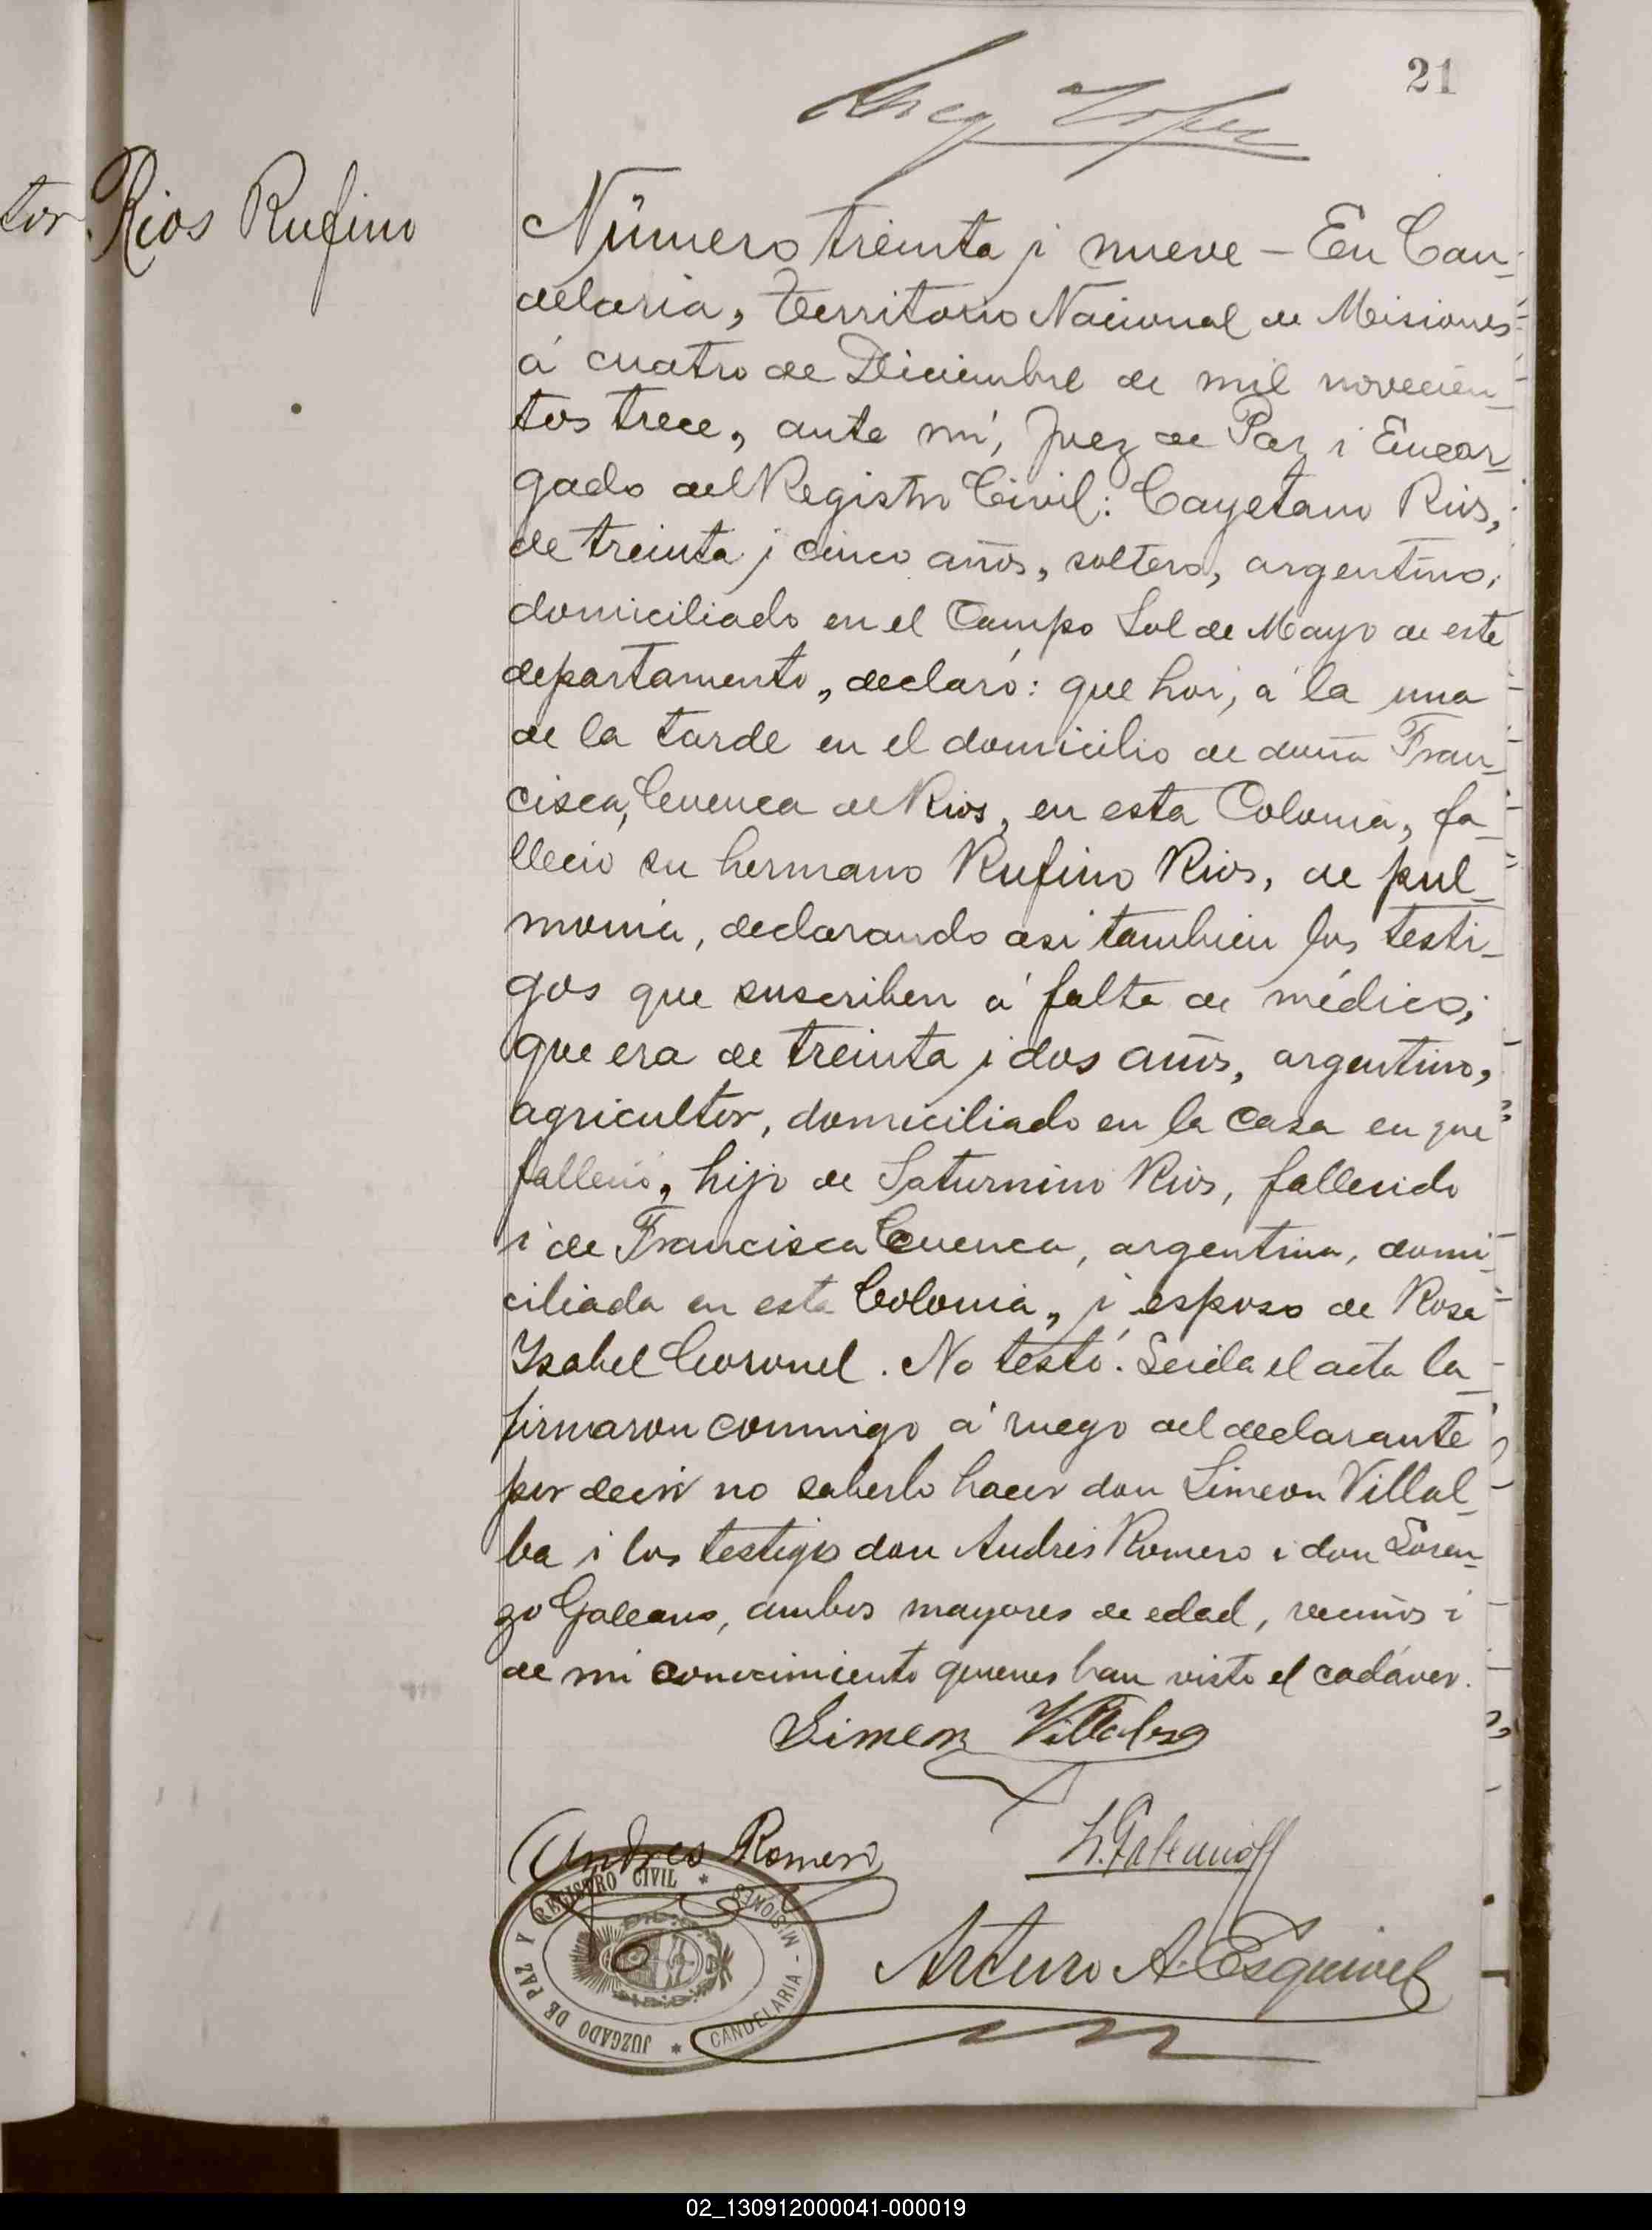 21
Lopez
tor
Rios Rufino
Número treinta i nueve – En Can-
delaria, Territorio Nacional de Misiones
á cuatro de Diciembre de mil novecien-
tos trece, ante mí, Juez de Paz i Encar-
gado del Registro Civil: Cayetano Rios,
de treinta i cinco años, soltero, argentino,
domiciliado en el Campo Sol de Mayo de este
departamento, declaró: que hoi, á la una
de la tarde en el domicilio de doña Fran-
cisca Cuenca de Rios, en esta Colonia, fa-
lleció su hermano Rufino Rios, de pul-
monía, declarando asi tambien los testi-
gos que suscriben á falta de médico;
que era de treinta i dos años, argentino,
agricultor, domiciliado en la casa en que
falleció, hijo de Saturnino Rios, fallecido
i de Francisca Cuenca, argentina, domi-
ciliada en esta Colonia, i esposo de Rosa
Ysabel Coronel. No testó. Leida el acta la
firmaron conmigo á ruego del declarante
por decir no saberlo hacer don Simeon Villal-
ba i los testigos don Andrés Romero i don Loren-
zo Galeano, ambos mayores de edad, vecinos i
de mi conocimiento quienes han visto el cadáver.
Simeon Villalba
Andres Romero
L. Galeano
Arturo A. Esquivel
JUZGADO DE PAZ Y REGISTRO CIVIL * MISIONES - CANDELARIA *
02_130912000041-000019